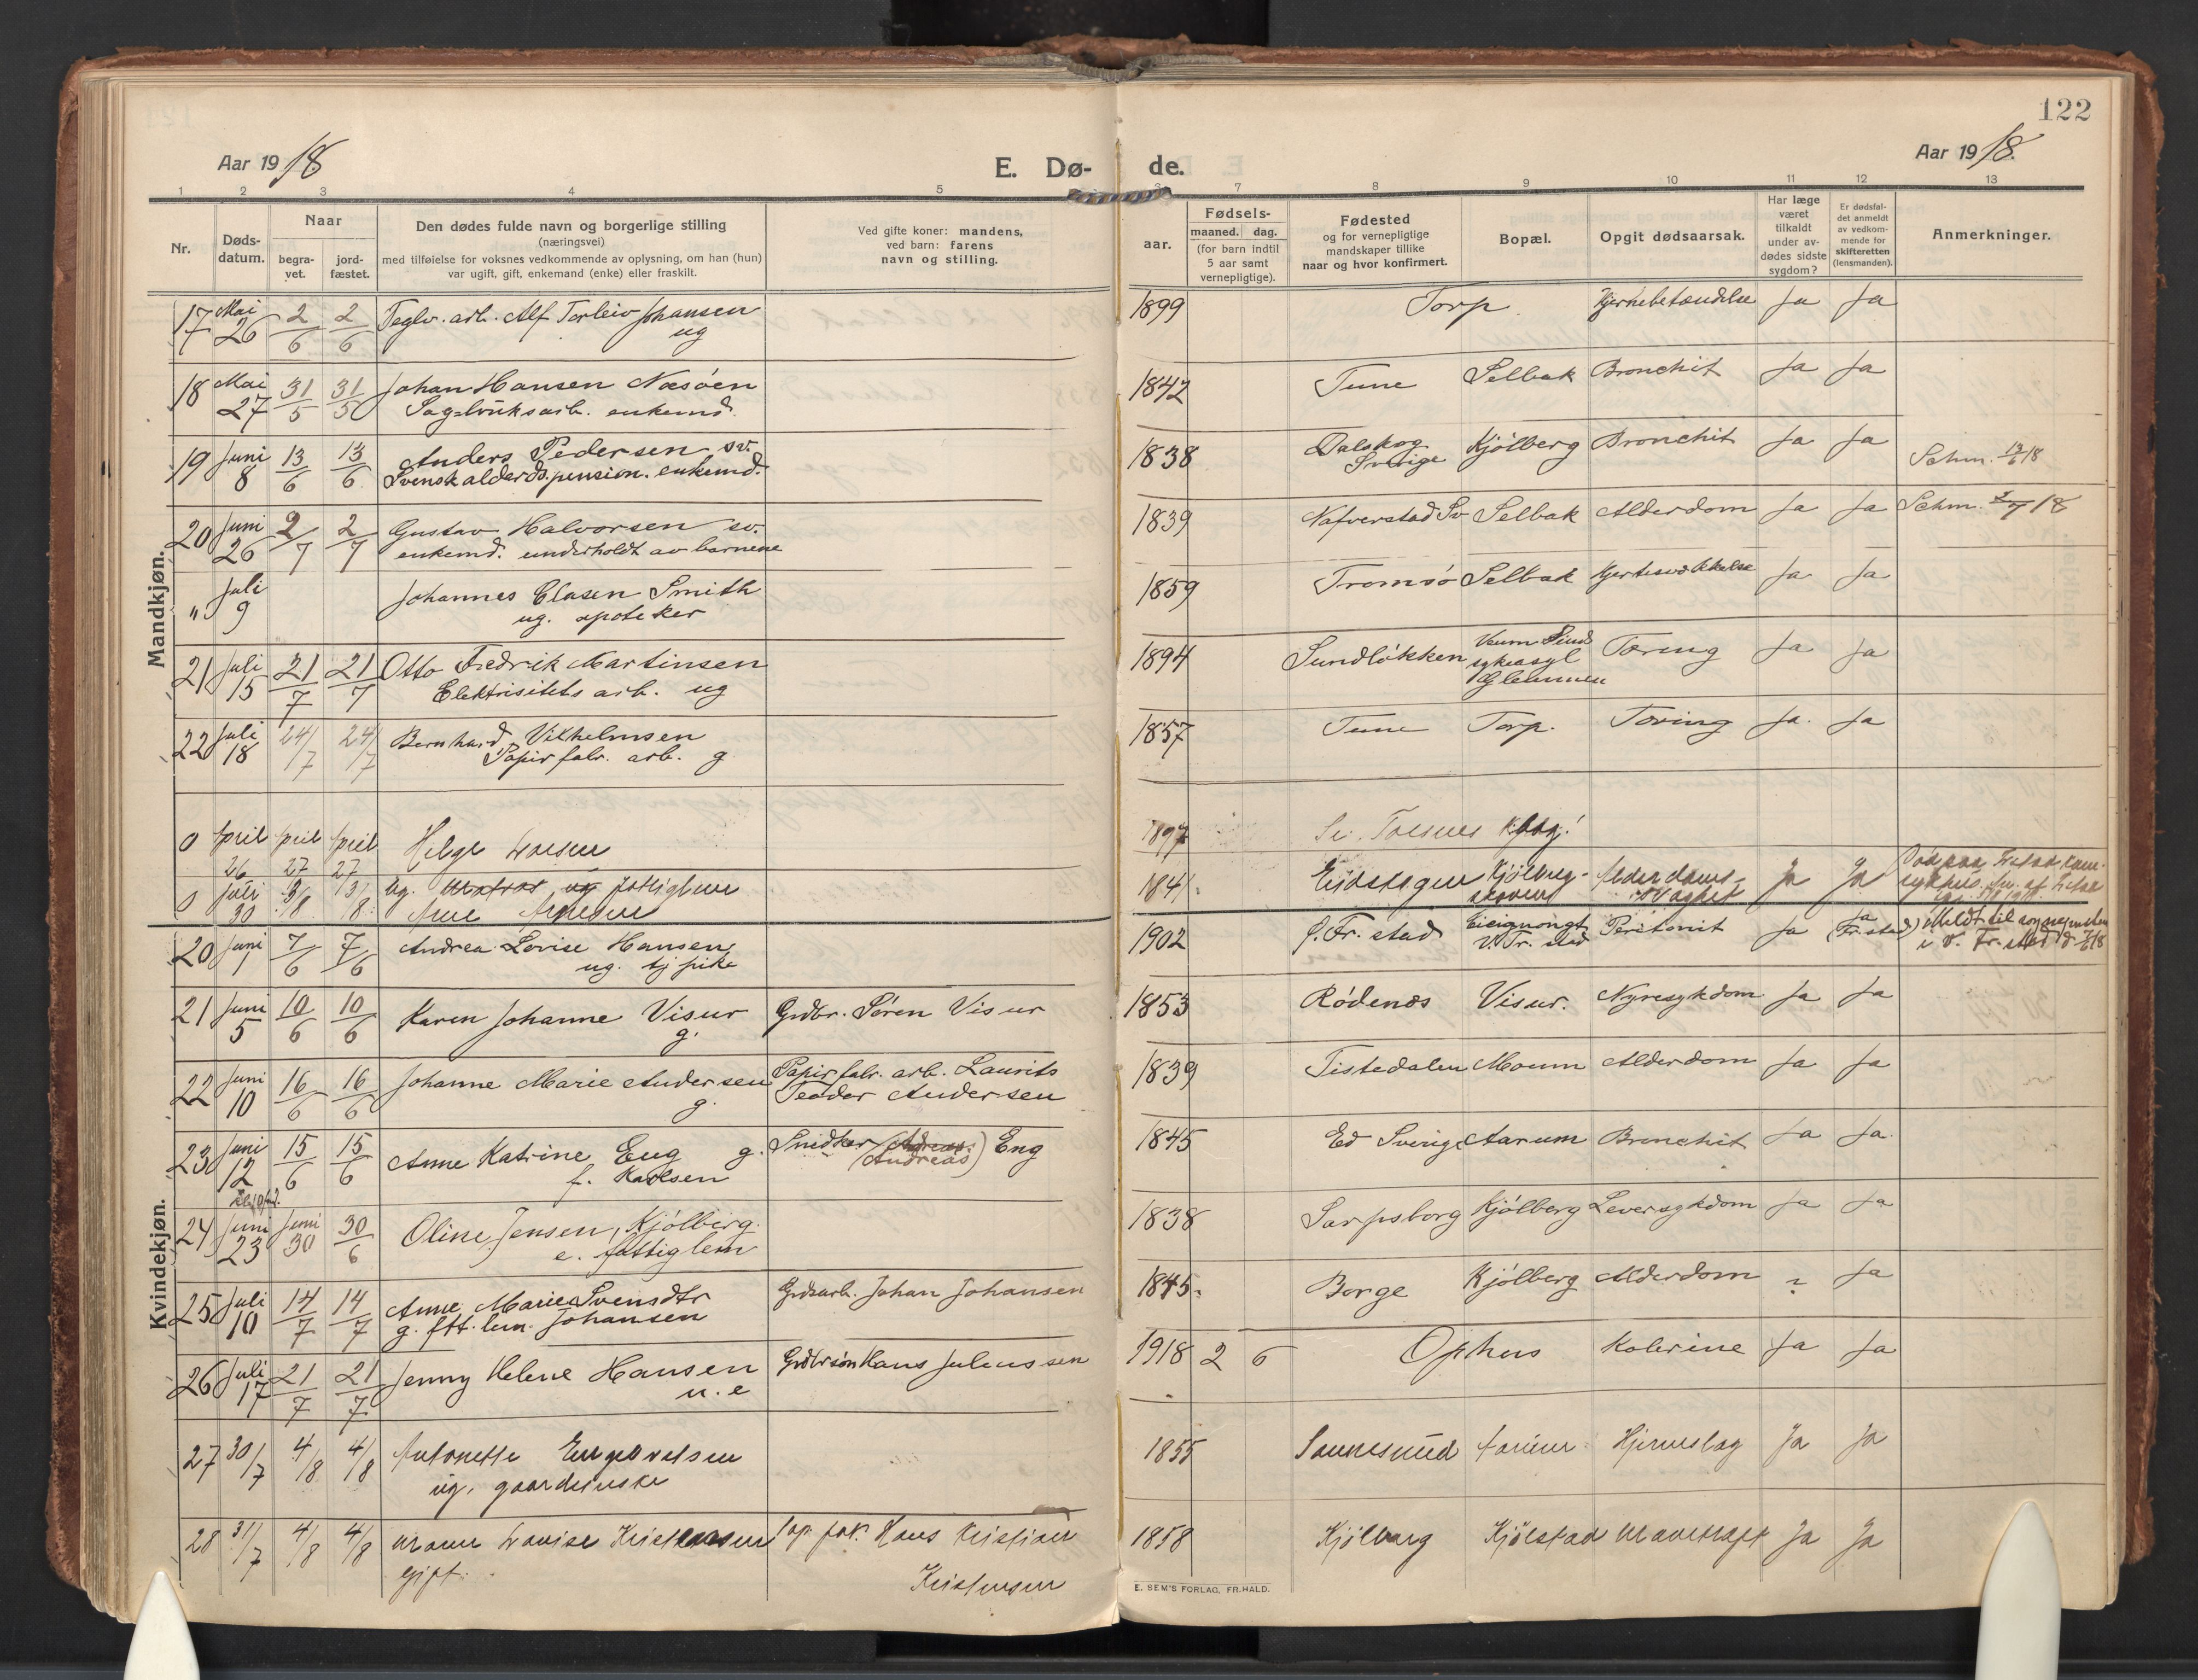 122
Aar 1918
E. Dø-
de.
Aar 1918.
1 2 3 4 5
6 7 8 9 10 11 12 13
Nr.
Døds-
datum.
Naar
begra-
vet.
jord-
fæstet.
Den dødes fulde navn og borgerlige stilling
(næringsvei)
med tilføielse for voksnes vedkommende av oplysning, om han (hun)
var ugift, gift, enkemand (enke) eller fraskilt.
Ved gifte koner: mandens,
ved barn: farens
navn og stilling.
aar.
Fødsels-
maaned. dag.
(for barn indtil
5 aar samt
vernepligtige).
Fødested
og for vernepligtige
mandskaper tillike
naar og hvor konfirmert.
Bopæl.
Opgit dødsaarsak.
Har læge
været
tilkaldt
under av-
dødes sidste
sygdom?
Er dødsfal-
det anmeldt
av vedkom-
mende for
skifteretten
(lensmanden).
Anmerkninger.
Mandkjøn.
17 Mai 26 2/6 2/6 Teglv. arb. Alf Torleiv Johansen
ug
1899 Torp Hjernebetændelse Ja Ja
18 Mai 27 31/5 31/5 Johan Hansen Næsøen
Sagbruksarb. enkemd.
1842 Tune Selbak Bronchit Ja Ja
19 Juni 8 13/6 13/6 Anders Pedersen sv.
Svensk alderds.pension. enkemd.
1838 Dalskog Sverige Kjølberg Bronchit Ja Ja Schm. 13/6 18
20 Juni 26 2/7 2/7 Gustav Halvorsen sv.
enkemd. underholdt av barnene
1839 Nafverstad Sv Selbak Alderdom Ja Ja Schm. 2/7 18
" Juli 9 Johannes Clasen Smith
ug. apoteker
1859 Tromsø Selbak Hjertesvækkelse Ja Ja
21 Juli 15 21/7 21/7 Otto Fredrik Martinsen
Elektrisitets arb. ug
1894 Sundløkken Veum Sindsykeasyl Glemmen Tæring Ja Ja
22 Juli 18 24/7 24/7 Bernhard Vilhelmsen
Papirfabr. arb. g
1857 Tune Torp. Tæring Ja. Ja
0 April 26 April 27 April 27 Helge
1897
0 Juli 30 3/8 3/8 ug. fattiglem
Arne Arnesen
1841. Eidskogen Kjølberg- skoven Alderdoms- svaghet Ja Ja
Kvindekjøn.
20 Juni 1 7/6 7/6 Andrea Lovise Hansen
ug. tj pike
1902 Fr. stad V. Fr. stad Peritonit Ja Ja (Fr. stad) Meldt til sognepresten
i V. Fr. stad d. 7/6 18
21 Juni 5 10/6 10/6 Karen Johanne Visur
g.
Grdbr. Søren Visur
1853 Rødenes Visur. Nyresykdom Ja Ja
22 Juni 10 16/6 16/6 Johanne Marie Andersen
g.
Papirfabr. arb. Laurits
Teodor Andersen
1839 Tistedalen Moum Alderdom Ja Ja
23 Juni 12 15/6 15/6 Anne Katrine Eng g.
f. Karlsen
Snidker (Andreas) Eng
1845 Ed Sverige Aarum Bronchit Ja Ja
24 Juni 23 Juni 30 30/6 Oline Jensen, Kjølberg.
e. fattiglem
1838 Sarpsborg Kjølberg Leversykdom Ja Ja
25 Juli 10 14/7 14/7 Anne Marie Svensdtr
g. ftt. lem. Johansen
Grdsarb. Johan Johansen
1845. Borge Kjølberg Alderdom ? Ja
26 Juli 17 21/7 21/7 Jenny Helene Hansen
u. e
Grdbrsøn Hans Juliussen
1918 2 6 Ophus Kolerine Ja Ja
27 30/7 4/8 4/8 Antonette Engebretsen
ug. gaardeierske
1855 Sannesund Aarum Hjerneslag Ja Ja
28 31/7 4/8 4/8 Maren Lovise Kristensen
gift.
Pap. fabr. Hans Kristian
Kristensen
1858 Kjølberg Kjølstad Mavekræft Ja Ja
E. SEM'S FORLAG, FR.HALD.